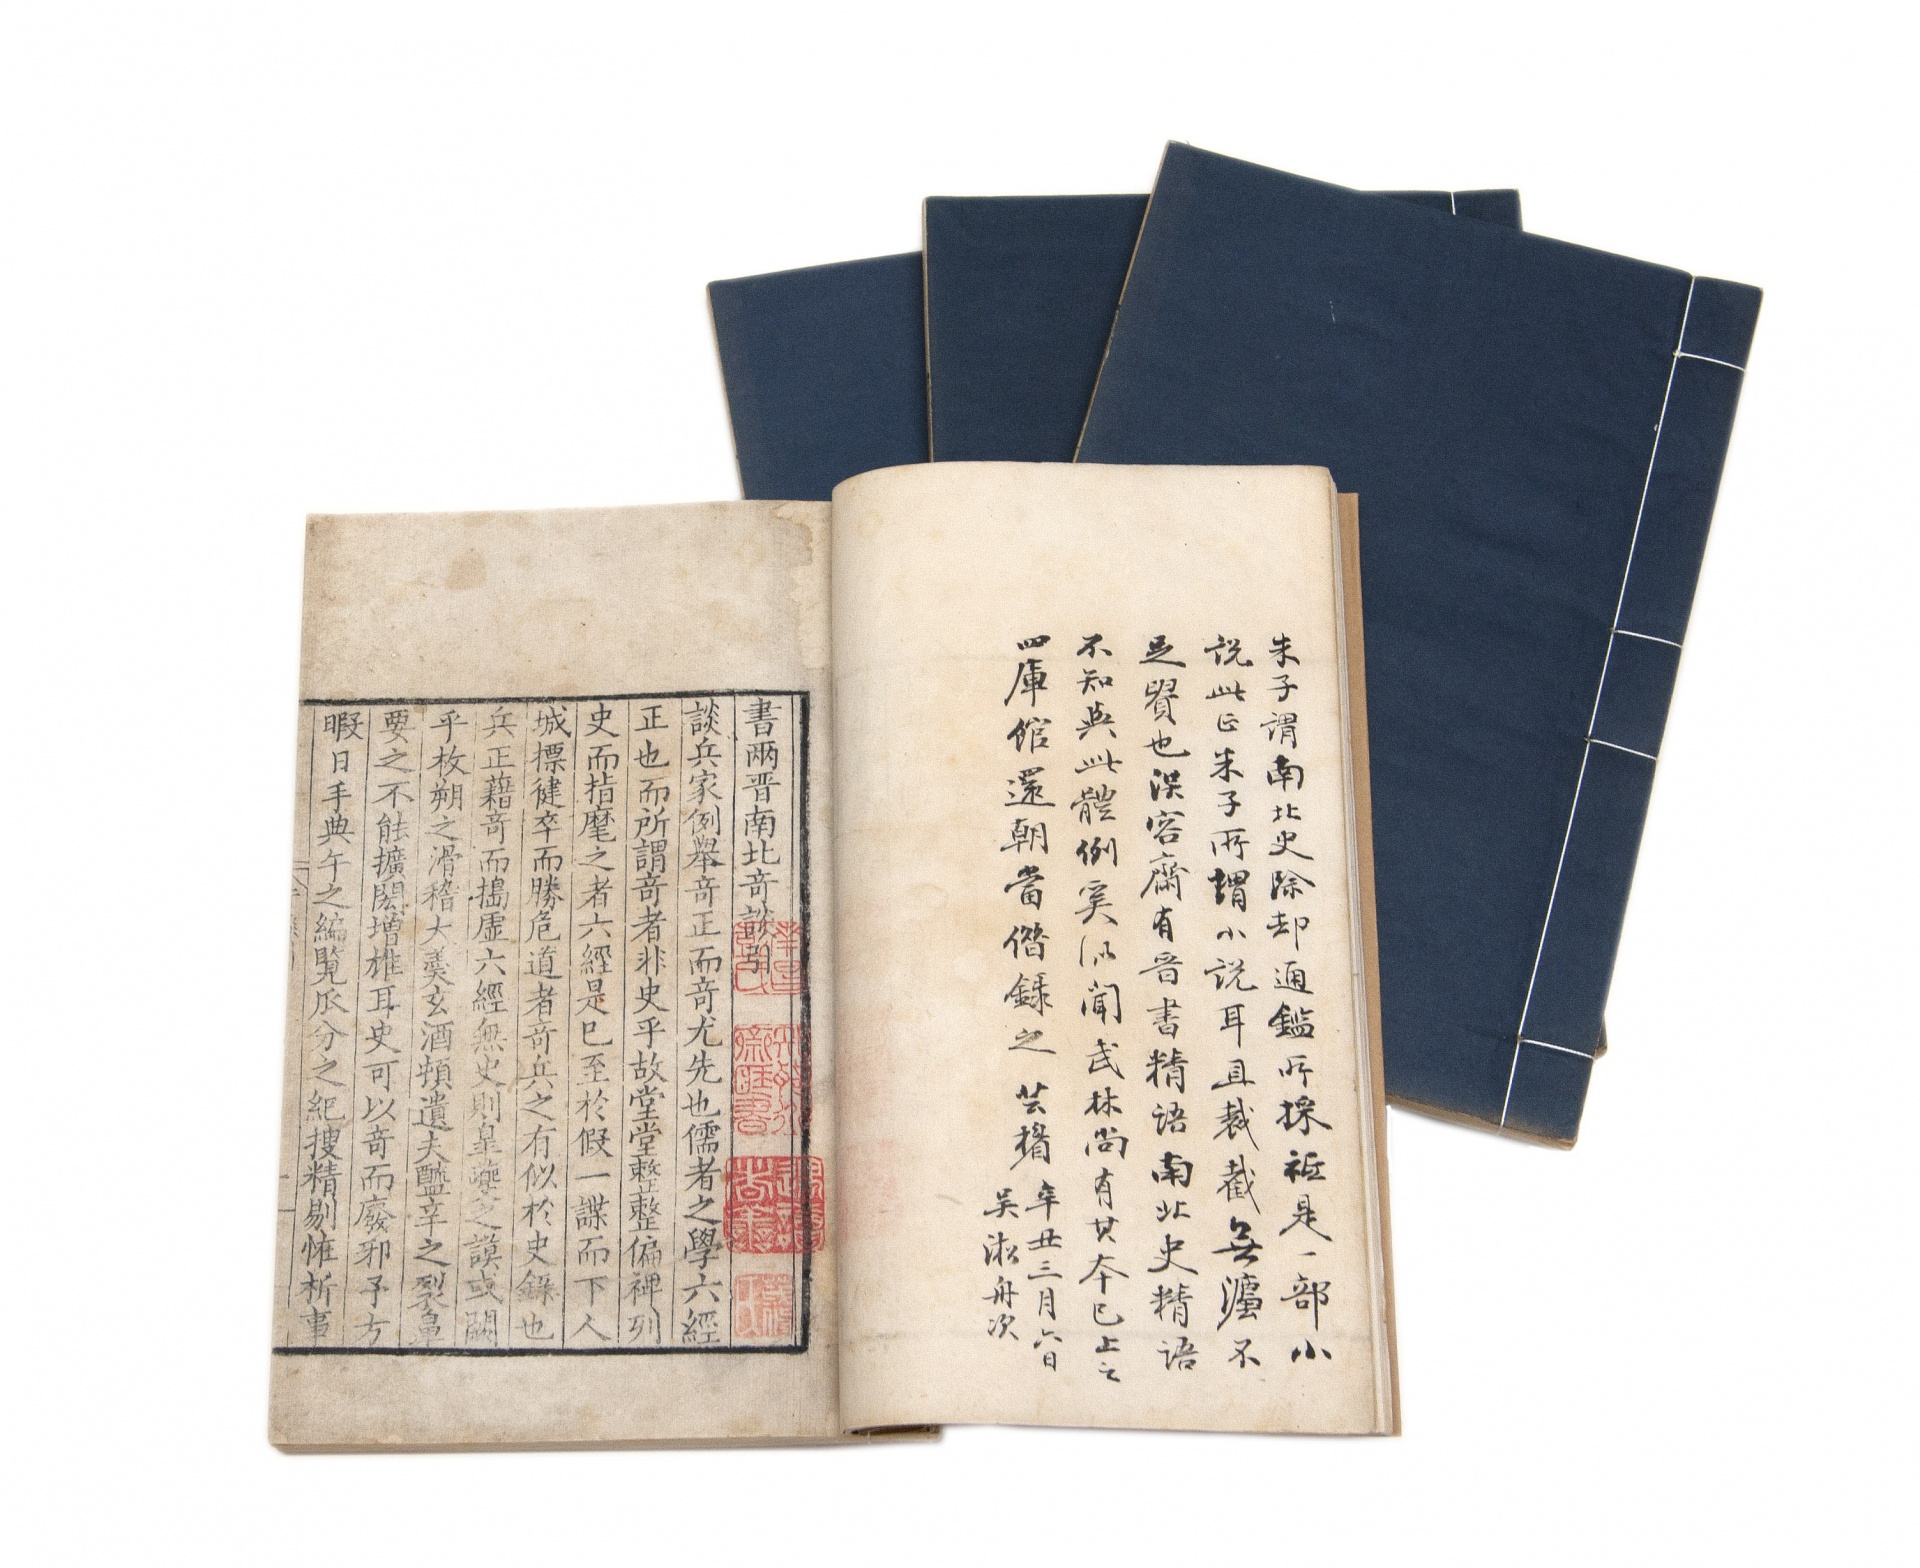 朱子謂南北史除却通鑑所採衹是一部小
說此正朱子所謂小說耳且裁截無灋不
足賢也洪容齋有晉書精語南北史精語
不知與此體例奚似聞武林尚有其本已上之
四庫館還朝當借錄之 芸楣 辛丑三月六日
吳淞舟次
書兩晋南北竒談引
談兵家例舉竒正而竒尤先也儒者之學六經
正也而所謂竒者非史乎故堂堂整整偏裨列
史而指麾之者六經是已至於假一諜而下人
城摽健卒而勝危道者竒兵之有似於史錄也
兵正藉竒而搗虛六經無史則皇燮之謨或闕
乎枚朔之滑稽大羹玄酒頓遺夫醢辛之裂鼻
要之不能擴閎增雄耳史可以竒而廢邪予方
暇日手典午之編覽瓜分之紀搜精剔惟析事